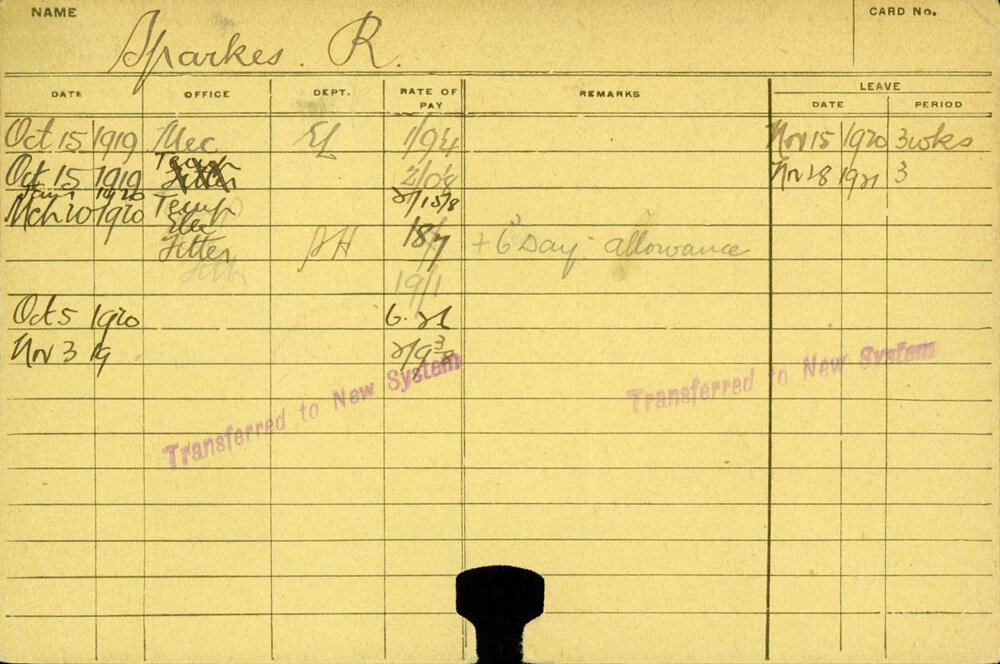 NAME Sparkes. R. CARD No.
DATE OFFICE DEPT. RATE OF PAY REMARKS LEAVE
DATE PERIOD
Oct 15 1919 Mec El 1/9¼ Nov 15 1920 3 wks
Oct 15 1919 Temp 2/0⅛ Nov 28 1921 3
Jan 1 1920
Mch 20 1920 Temp 2/15/8
Elec
Fitter SH 18/7 + 6 Day allowance
19/1
Oct 5 1920 6.
Nov 3 19 2/9⅜
Transferred to New System
Transferred to New System